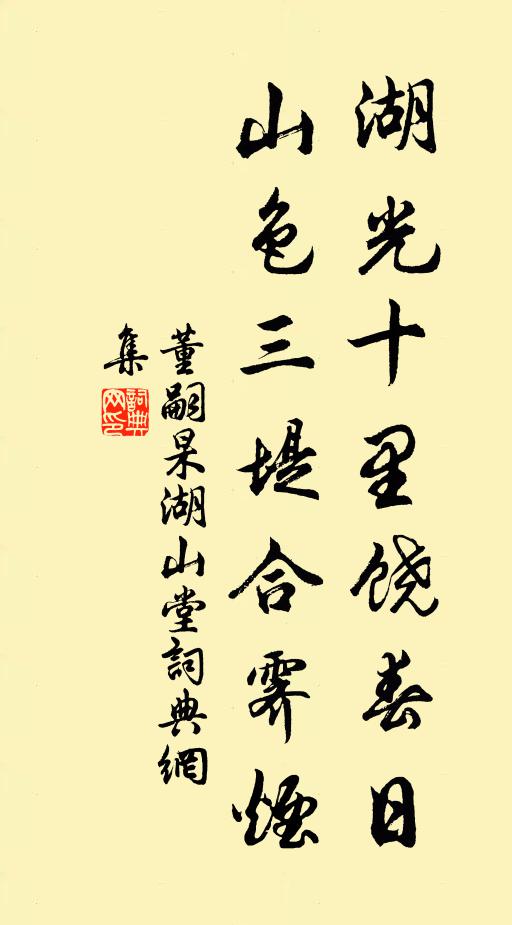 湖光十里饶春日
山色三堤合霁烟
董嗣杲湖山堂詞典網
集
詞典網印